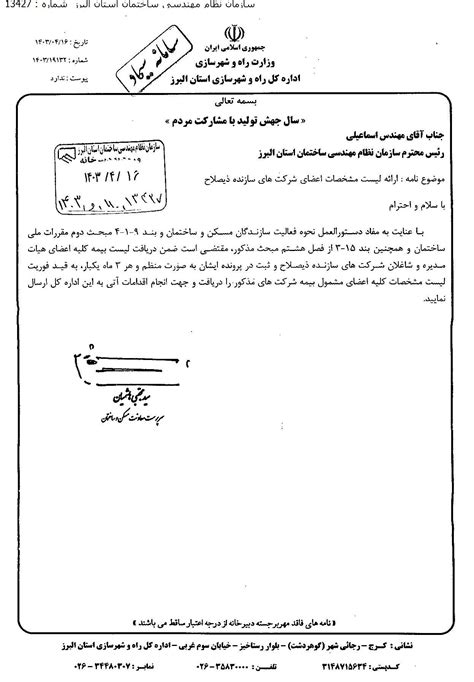 سازمان نظام مهندسی ساختمان استان البرز شماره : 13427
تاریخ : ۱۴۰۳/۰۴/۱۶
شماره : ۱۴۰۳/۱۹۱۳۲
پیوست : ندارد
جمهوری اسلامی ایران
وزارت راه و شهرسازی
اداره کل راه و شهرسازی استان البرز
بسمه تعالی
« سال جهش تولید با مشارکت مردم »
جناب آقای مهندس اسماعیلی
رئیس محترم سازمان نظام مهندسی ساختمان استان البرز
سازمان نظام مهندسی ساختمان استان البرز
خانه
۱۴۰۳ / ۴ / ۱۶
موضوع نامه : ارائه لیست مشخصات اعضای شرکت های سازنده ذیصلاح
با سلام و احترام
با عنایت به مفاد دستورالعمل نحوه فعالیت سازندگان مسکن و ساختمان و بند ۹-۱-۴ مبحث دوم مقررات ملی
ساختمان و همچنین بند ۱۵-۳ از فصل هشتم مبحث مذکور، مقتضی است ضمن دریافت لیست بیمه کلیه اعضای هیات
مدیره و شاغلان شرکت های سازنده ذیصلاح و ثبت در پرونده ایشان به صورت منظم و هر ۳ ماه یکبار، به قید فوریت
لیست مشخصات کلیه اعضای مشمول بیمه شرکت های مذکور را دریافت و جهت انجام اقدامات آتی به این اداره کل ارسال
نمایید.
سید مجتبی هاشمیان
سرپرست معاونت مسکن و ساختمان
« نامه های فاقد مهربرجسته دبیرخانه از درجه اعتبار ساقط می باشند »
نشانی : کرج – رجائی شهر (گوهردشت) – بلوار رستاخیز – خیابان سوم غربی – اداره کل راه و شهرسازی استان البرز
کدپستی : ۳۱۴۸۷۱۵۶۳۴ تلفن : ۳۵۸۳۰۰۰۰-۰۲۶ نمابر : ۳۴۴۸۰۳۰۷-۰۲۶